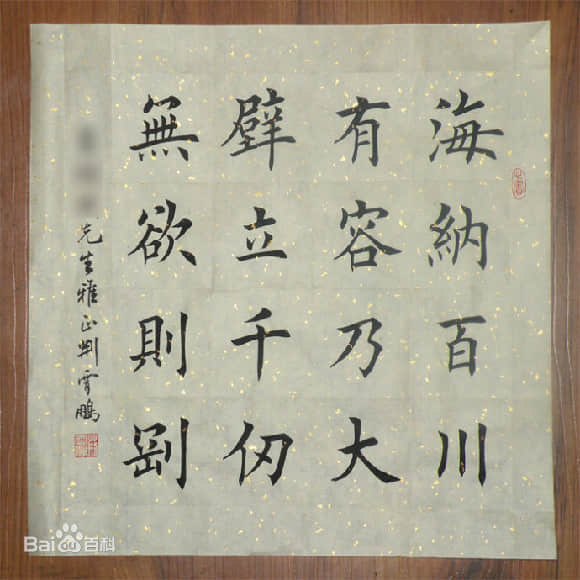 海納百川
有容乃大
壁立千仞
無欲則剛
先生雅正
Baidu百科